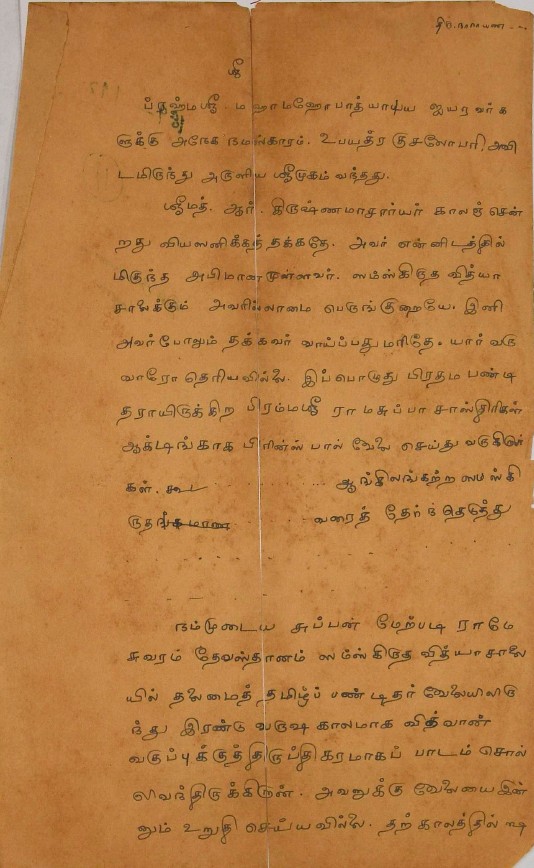 ஸ்ரீ
ப்ரஹ்மஸ்ரீ மஹாமஹோபாத்யாய ஐயரவர்க
ளுக்கு அநேக நமஸ்காரம். உபயத்ர குசலோபரி, அவி
டமிருந்து அருளிய ஸ்ரீமுகம் வந்தது.
ஸ்ரீமத். ஆர். கிருஷ்ணமாசார்யர் காலஞ் சென்
றது வியஸனிக்கத் தக்கதே. அவர் என்னிடத்தில்
மிகுந்த அபிமானமுள்ளவர். ஸம்ஸ்கிருத வித்யா
சாலைக்கும் அவரில்லாமை பெருங்குறையே. இனி
அவர்போலும் தக்கவர் வாய்ப்பதுமரிதே. யார் வரு
வாரோ தெரியவில்லை. இப்பொழுது பிரதம பண்டி
தராயிருக்கிற பிரம்மஸ்ரீ ராமசுப்பா சாஸ்திரிகள்
ஆக்டிங்காக பிரின்ஸ்பால் வேலை செய்து வருகிறார்
கள். கூட ஆங்கிலங்கற்ற ஸம்ஸ்கி
ருதங் வரைத் தேர்ந்தெடுத்து
நம்முடைய சுப்பன் மேற்படி ராமே
சுவரம் தேவஸ்தானம் ஸம்ஸ்கிருத வித்யாசாலை
யில் தலைமைத் தமிழ்ப் பண்டிதர் வேலையிலிரு
ந்து இரண்டு வருஷ காலமாக வித்வான்
வகுப்புக்குத்திருப்திகரமாகப் பாடம் சொல்
லிவந்திருக்கிறான். அவனுக்கு வேலையை இன்
னும் உறுதி செய்யவில்லை. தற்காலத்தில்